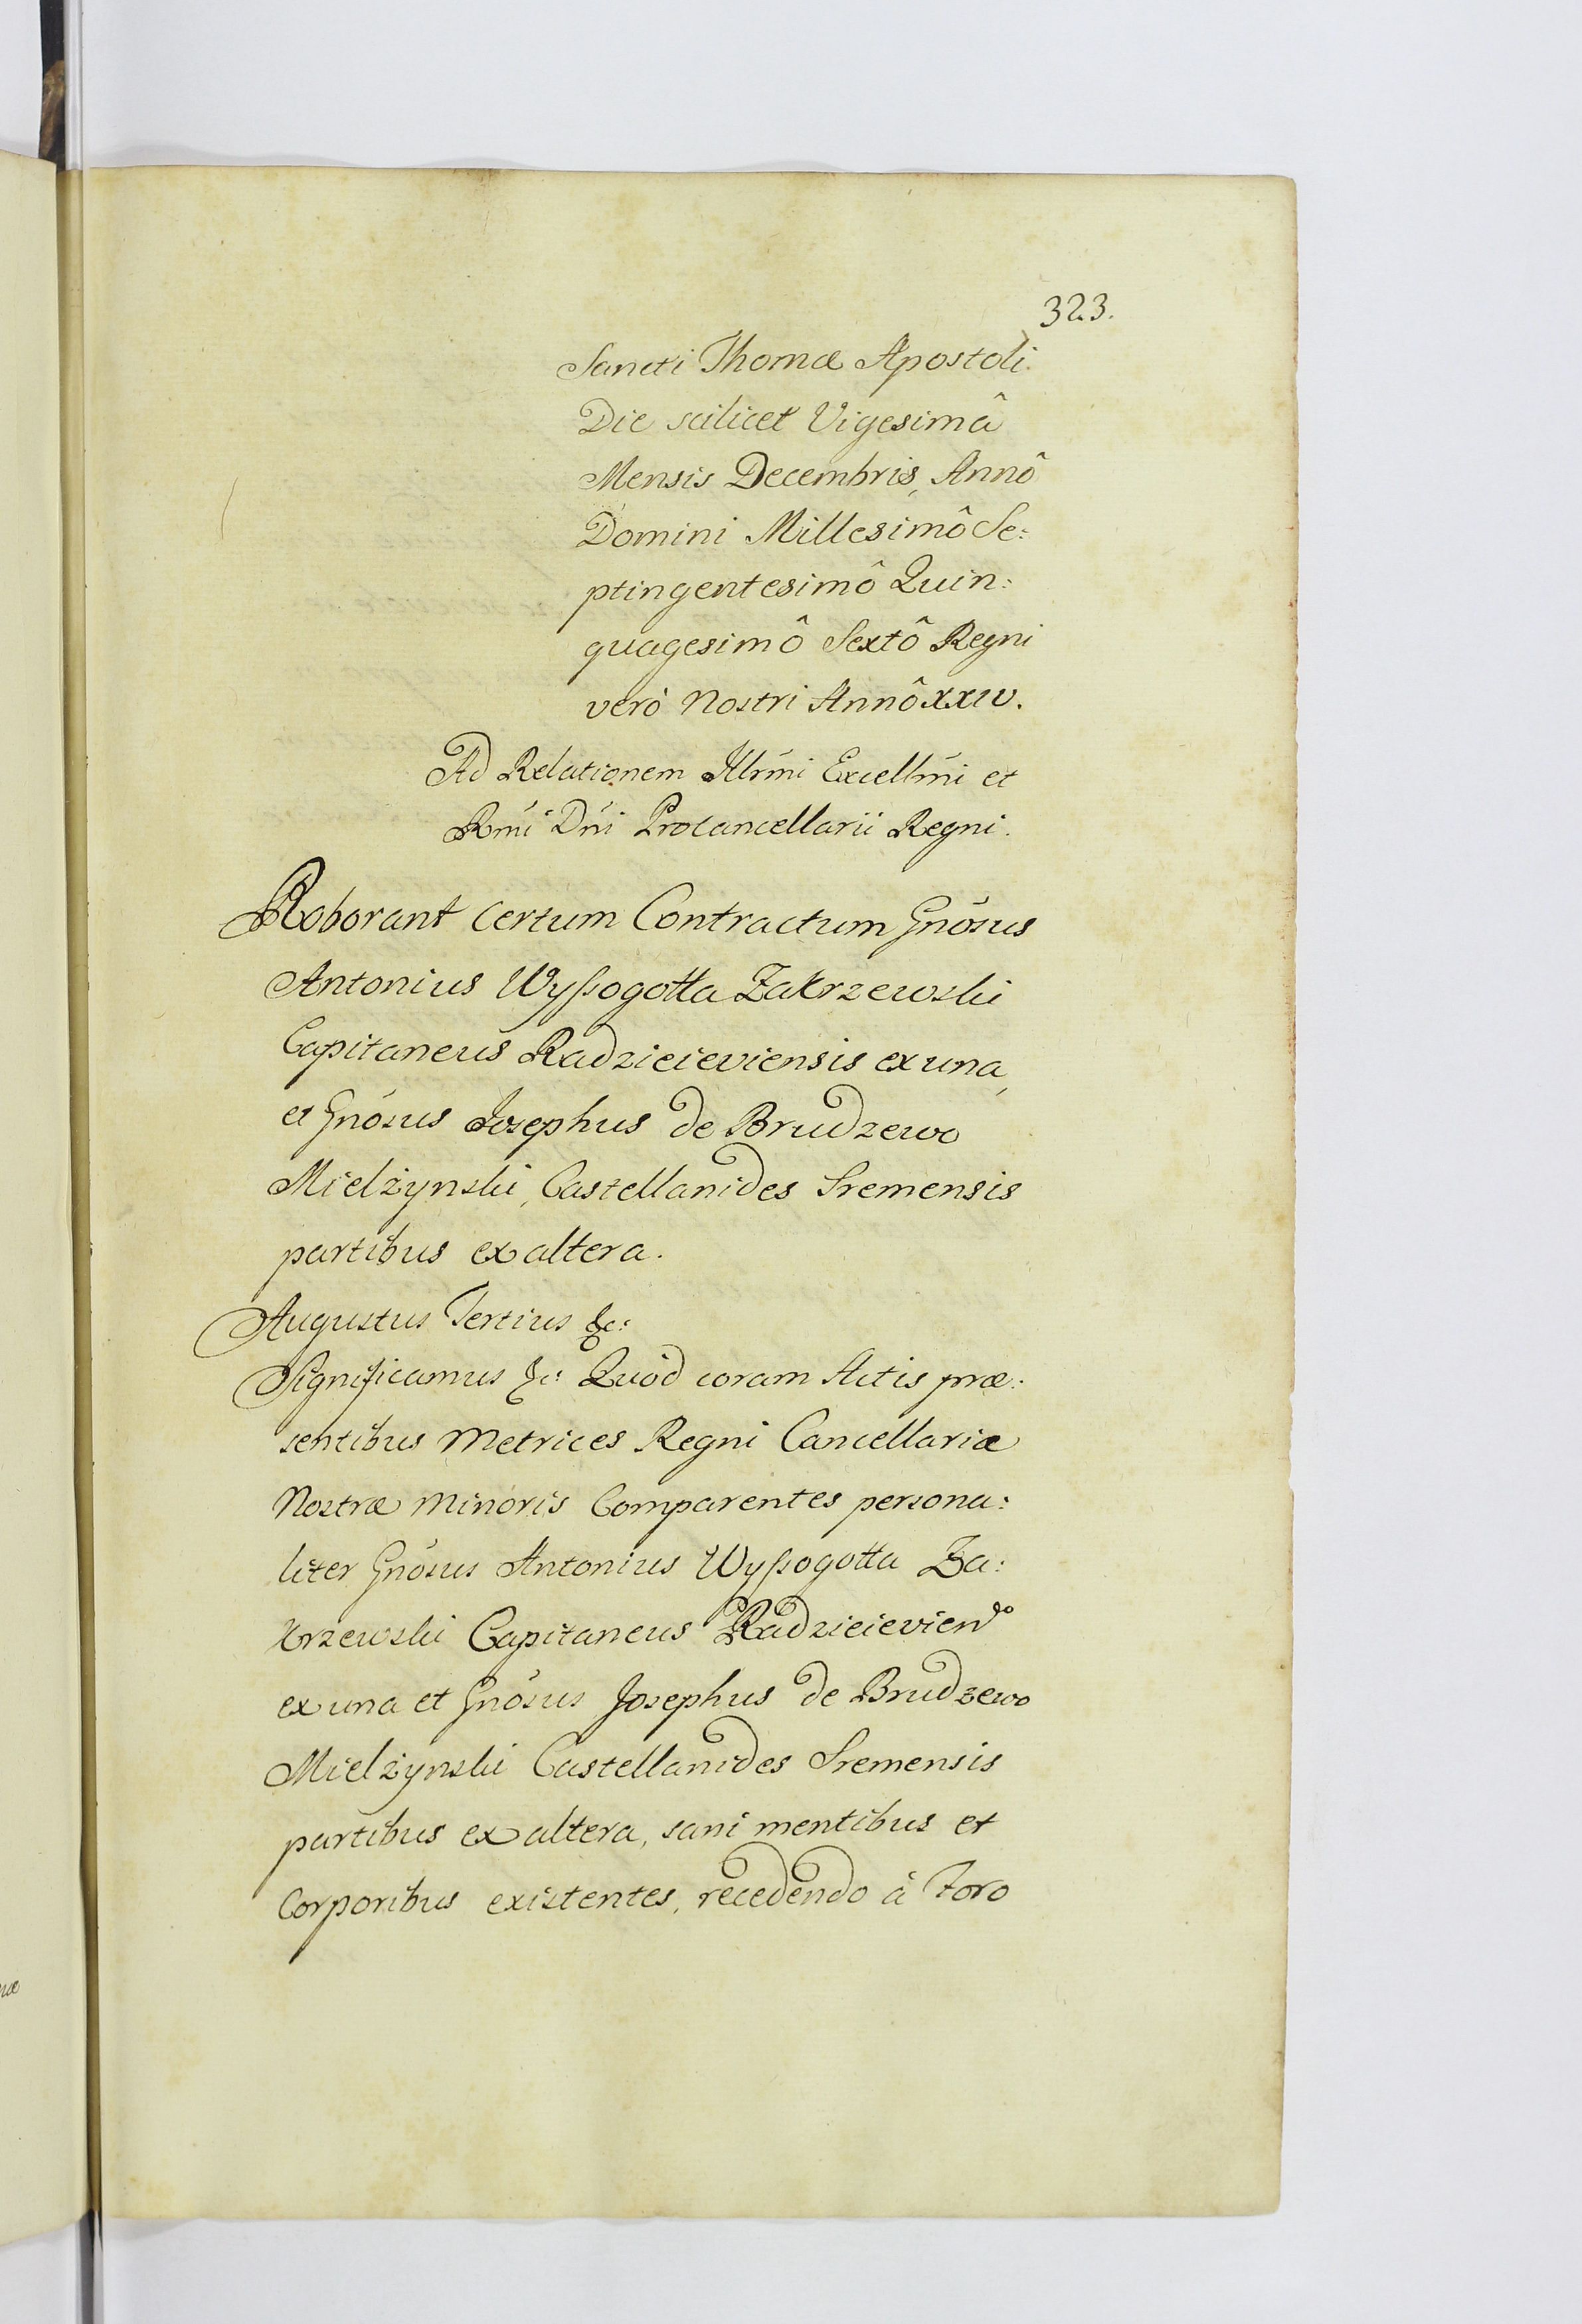 323.
Sancti Thomæ Apostoli.
Die scilicet Vigesimâ
Mensis Decembris, Annô
Domini Millesimô Se:
ptingentesimô Quin:
quagesimô Sextô Regni
verò Nostri Annô XXIV.
Ad Relationem Illrmi Excellmi et
Rmi Dni Procancellarii Regni.
Roborant certum Contractum Gnosus
Antonius Wyssogotta Zakrzewski
Capitaneus Radzieieviensis ex una,
et Gnosus Josephus de Brudzewo
Mielżynski, Castellanides Sremensis
partibus ex altera.
Augustus Tertius &c:
Significamus &c: Quod coram Actis præ:
sentibus Metrices Regni Cancellariæ
Nostræ Minoris Comparentes persona:
liter Gnosus Antonius Wyssogotta Za:
krzewski Capitaneus Radzieievien
ex una et Gnosus Josephus de Brudzewo
Mielżynski Castellanides Sremensis
partibus ex altera, sani mentibus et
Corporibus existentes, recedendo à Foro